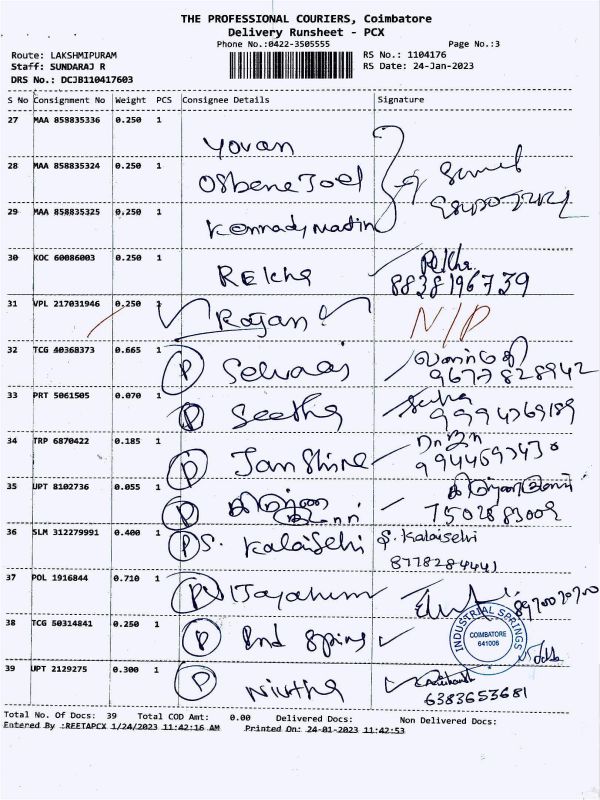 THE PROFESSIONAL COURIERS, Coimbatore
Delivery Runsheet - PCX
Phone No.:0422-3505555 Page No.:3
Route: LAKSHMIPURAM RS No.: 1104176
Staff: SUNDARAJ R RS Date: 24-Jan-2023
DRS No.: DCJB110417603
S No Consignment No Weight PCS Consignee Details Signature
27 MAA 858835336 0.250 1
Yovan
28 MAA 858835324 0.250 1
Osbene Joel
29 MAA 858835325 0.250 1
Kennady Martin
30 KOC 60086003 0.250 1
Rekha Rekha
8838196739
31 VPL 217031946 0.250 1
Rajan N/P
32 TCG 40368373 0.665 1
P Selvaraj
9677828942
33 PRT 5061505 0.070 1
P Seetha
9994769189
34 TRP 6870422 0.185 1
P Jan Shine
35 UPT 8102736 0.055 1
P
7502883009
36 SLM 312279991 0.400 1
P S. Kalaiselvi S. Kalaiselvi
8778284441
37 POL 1916844 0.710 1
P
38 TCG 50314841 0.250 1
P Ind Spring
INDUSTRIAL SPRINGS
COIMBATORE
641006
39 UPT 2129275 0.300 1
P Nivtha
6383653681
Total No. Of Docs: 39 Total COD Amt: 0.00 Delivered Docs: Non Delivered Docs:
Entered By :REETAPCX 1/24/2023 11:42:16 AM Printed On: 24-01-2023 11:42:53